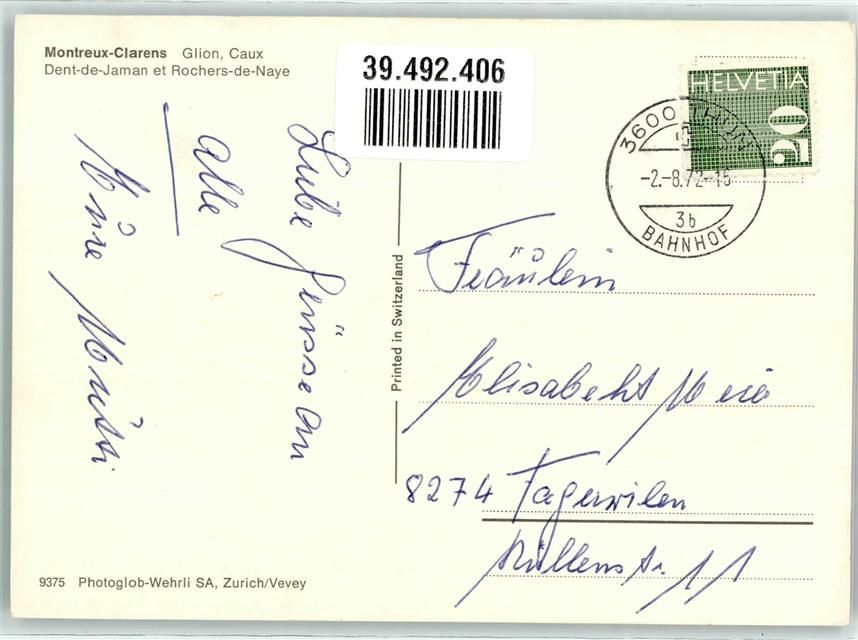 Montreux-Clarens Glion, Caux
Dent-de-Jaman et Rochers-de-Naye
39.492.406
HELVETIA
20
3600 THUN
-2.-8.72-15
3b
BAHNHOF
Liebe Grüsse an
alle
Eure Mutti
Printed in Switzerland
Fräulein
Elisabeht Meier
8274 Tägerwilen
11
9375 Photoglob-Wehrli SA, Zurich/Vevey